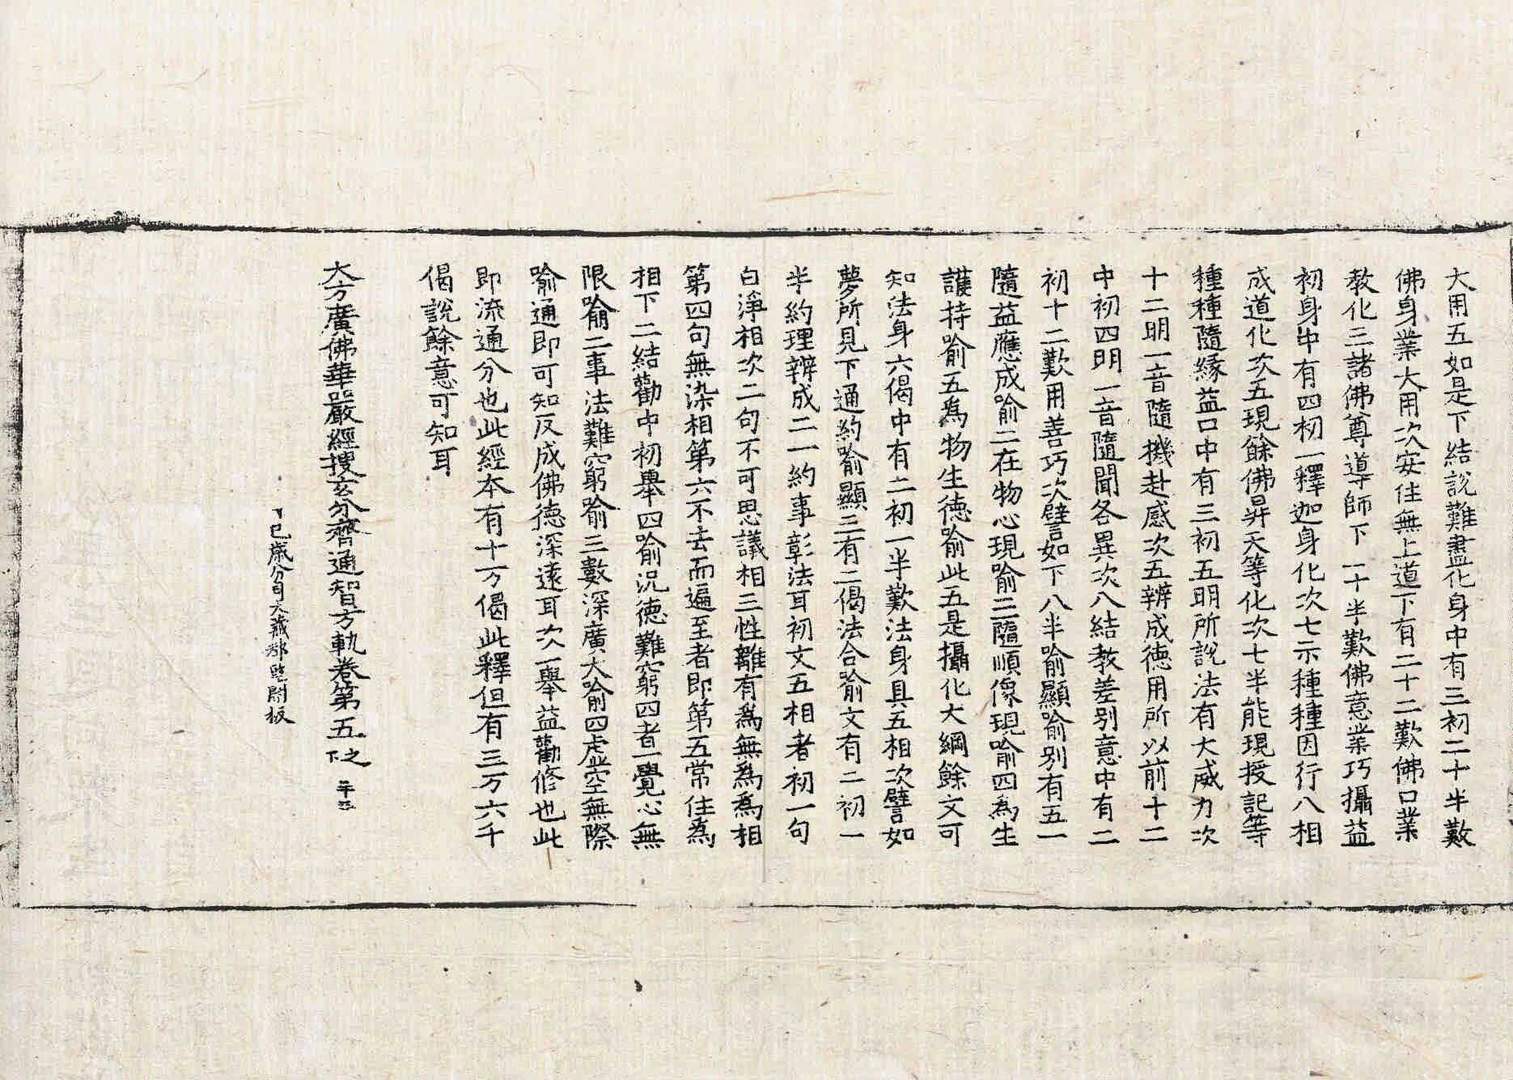 大用五如是下結說難盡化身中有三初二十半歎
佛身業大用次安住無上道下有二十二歎佛口業
教化三諸佛尊導師下一十半歎佛意業巧攝益
初身中有四初一釋迦身化次七示種種因行八相
成道化次五現餘佛昇天等化次七半能現授記等
種種隨緣益口中有三初五明所說法有大威力次
十二明一音隨機赴感次五辨成德用所以前十二
中初四明一音隨聞各異次八結教差別意中有二
初十二歎用善巧次譬如下八半喻顯喻別有五一
隨益應成喻二在物心現喻三隨順像現喻四為生
護持喻五為物生德喻此五是攝化大綱餘文可
知法身六偈中有二初一半歎法身具五相次譬如
夢所見下通約喻顯三有二偈法合喻文有二初一
半約理辨成二一約事彰法耳初文五相者初一句
白淨相次二句不可思議相三性離有為無為為相
第四句無染相第六不去而遍至者即第五常住為
相下二結勸中初舉四喻況德難窮四者一覺心無
限喻二事法難窮喻三數深廣大喻四虛空無際
喻通即可知反成佛德深遠耳次一舉益勸修也此
即流通分也此經本有十万偈此釋但有三万六千
偈說餘意可知耳
大方廣佛華嚴經搜玄分齊通智方軌卷第五之下
巳歲分司大藏都監開板